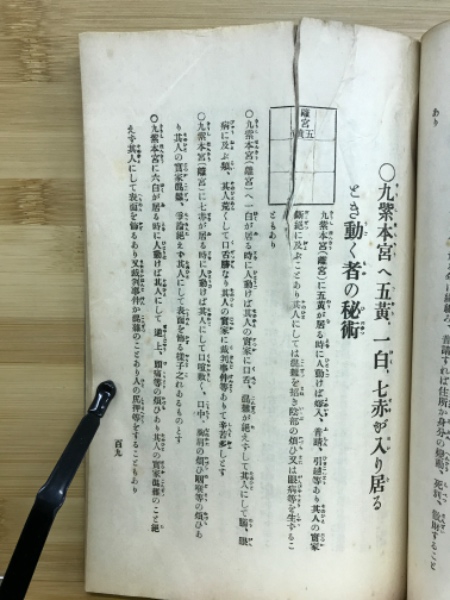 〇九紫本宮へ五黄、一白、七赤が入り居る
とき動く者の秘術
離宮
五黄
九紫本宮(離宮)に五黄が居る時に人動けば嫁入、普請、引越等あり其人の實家
斷絕に及ぶことあり其人にしては混雜を招き陰部の煩ひ又は眼病等を生ずるこ
ともあり
〇九紫本宮(離宮)へ一白が居る時に人動けば其人の實家に口舌、混雜が絕えずして其人にして腸、眼
病に及ぶ類、其人荒くして口舌勝なり其人の實家に裁判事件等ありて辛苦多しとす
〇九紫本宮(離宮)に七赤が居る時に人動けば其人にして口喧敷く、口中、胸病の煩ひ咽喉等の煩ひあ
り其人の實家混雜、爭論絕えず其人にして表面を飾る樣子之れあるものとす
〇九紫本宮に六白が居る時に人動けば其人にして逆上、頭痛等の煩ひあり其人の實家混雜のこと絕
えず其人にして表面を飾るあり又裁判事件か混雜のことあり人の等をすることもあり
百九
あり
普請すれば住所か身分の變動、死
すること